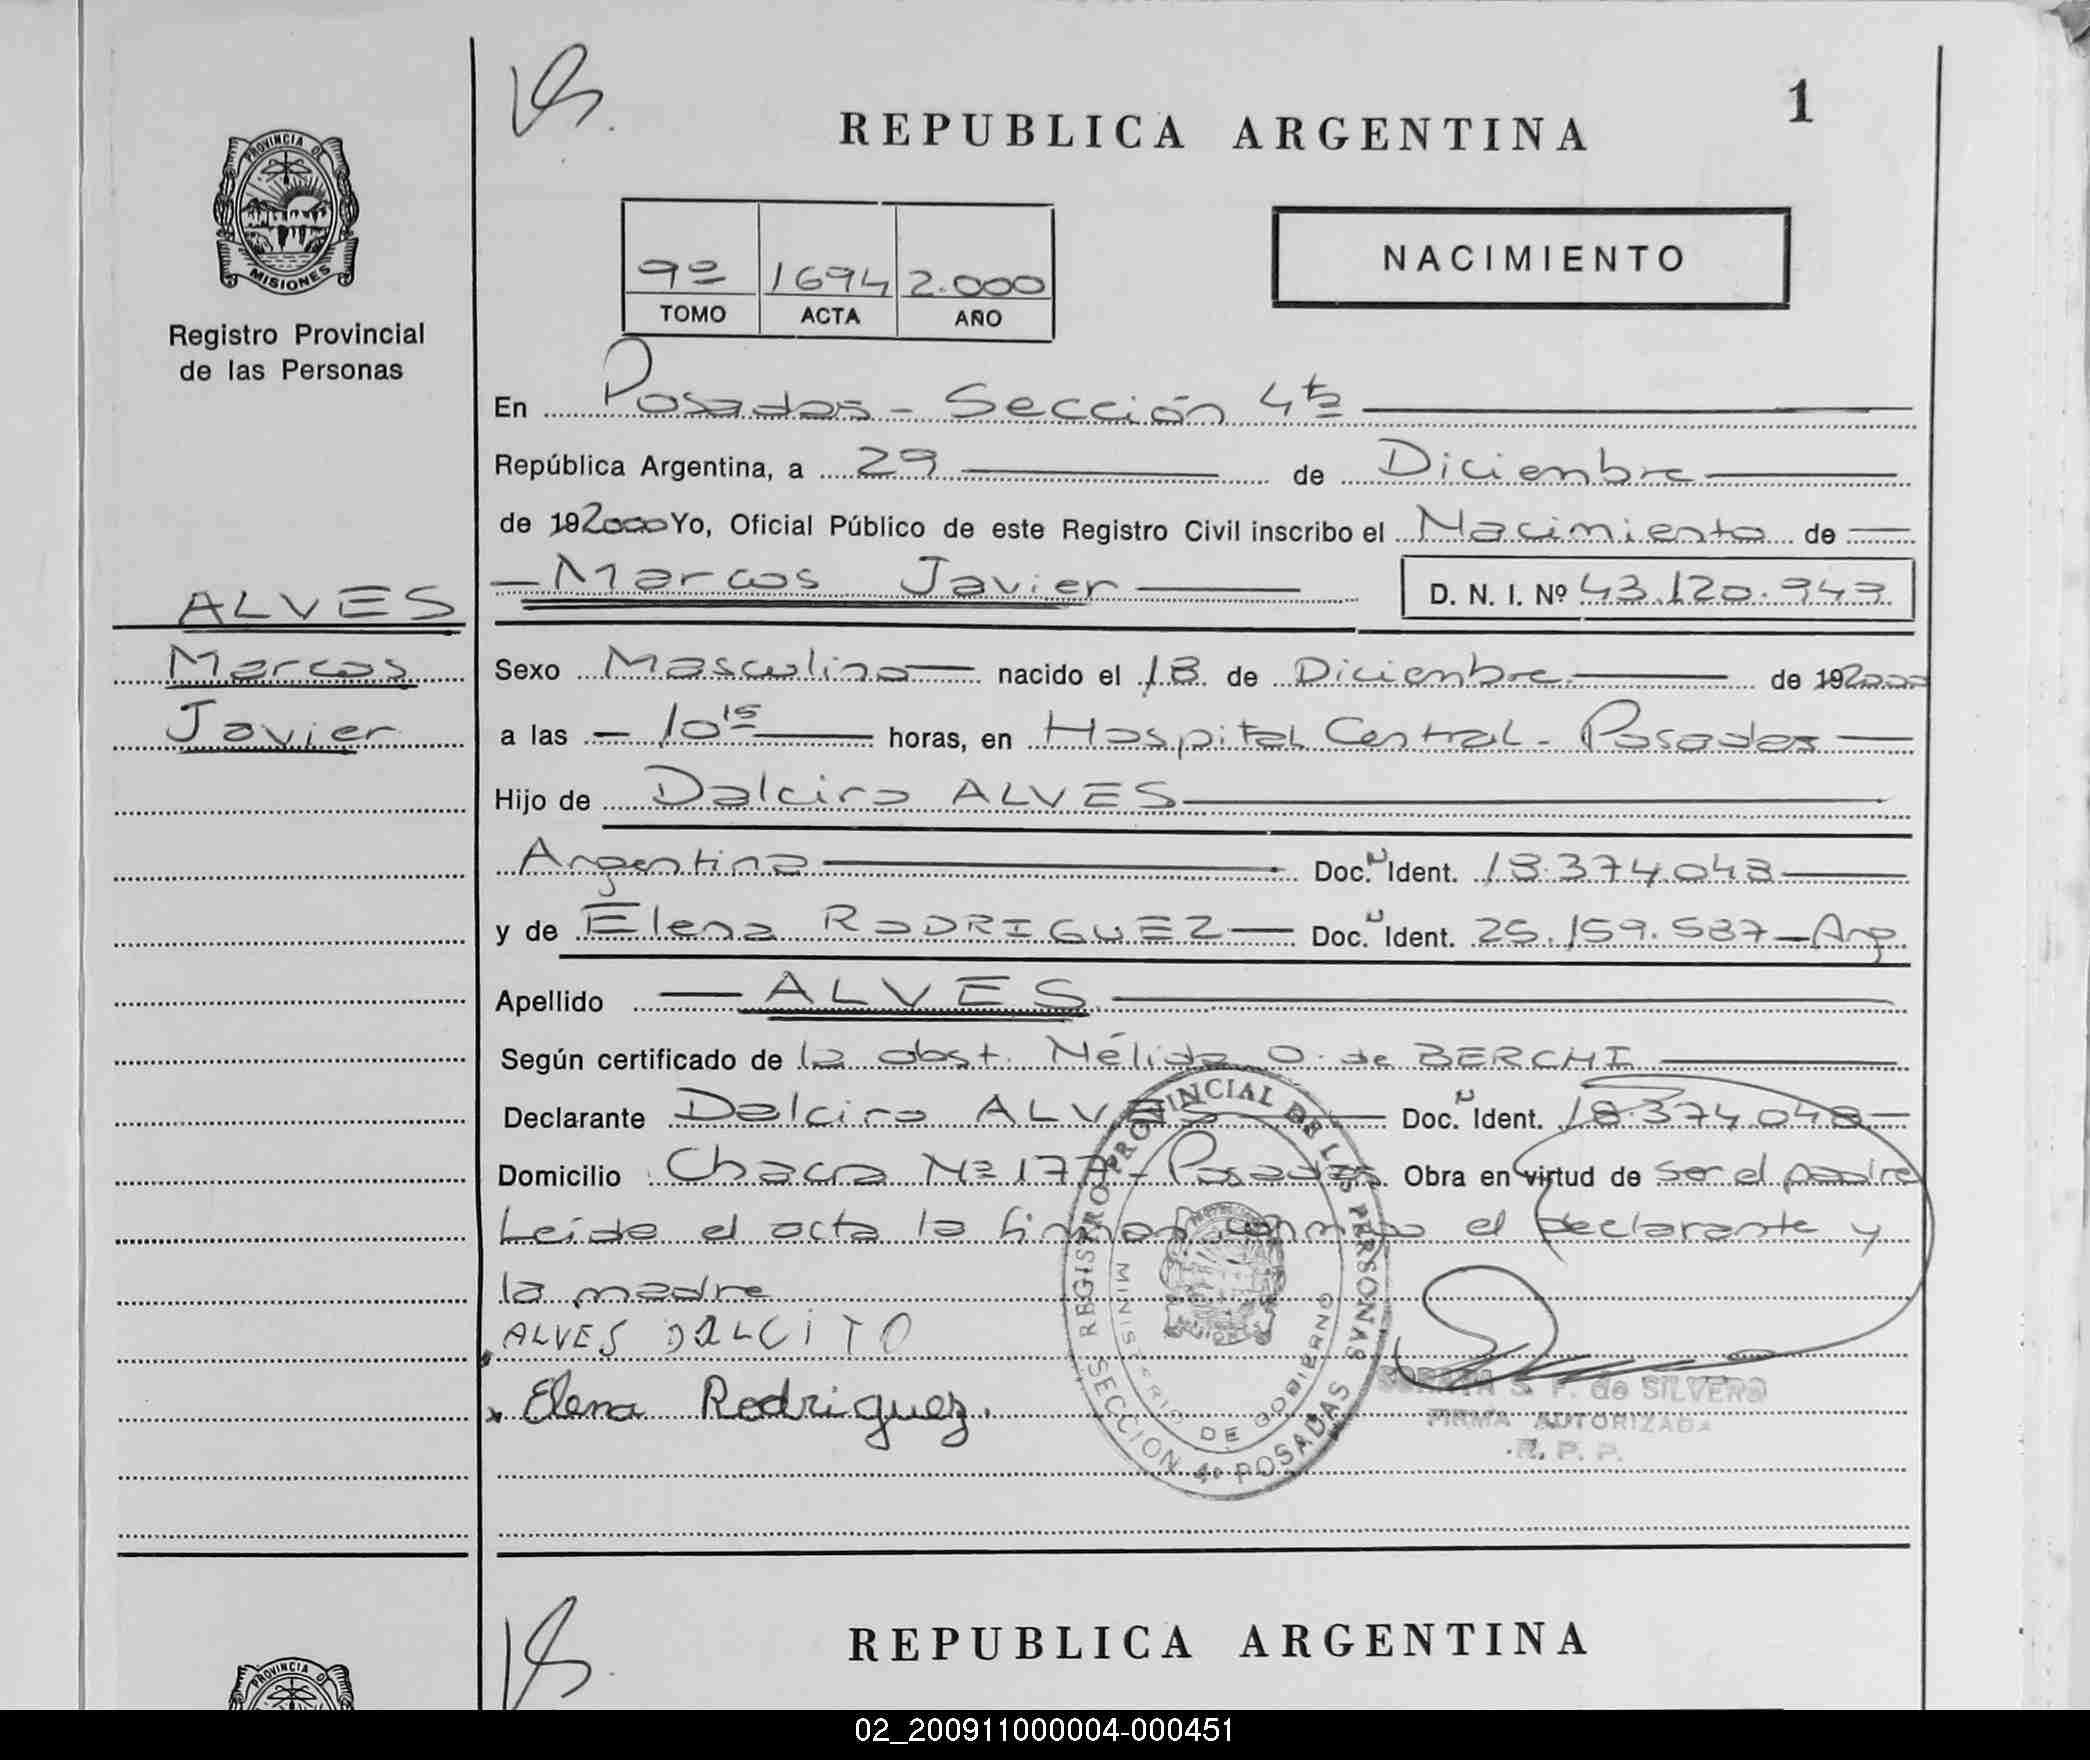 1
REPUBLICA ARGENTINA
PROVINCIA DE
MISIONES
Registro Provincial
de las Personas
9º 1694 2.000
TOMO ACTA AÑO
NACIMIENTO
En Posadas - Sección 4ta
República Argentina, a 29 de Diciembre
de 192000 Yo, Oficial Público de este Registro Civil inscribo el Nacimiento de
Marcos Javier D. N. I. Nº 43.120.943
ALVES
Marcos
Javier
Sexo Masculino nacido el 18 de Diciembre de 192000
a las 10 15 horas, en Hospital Central - Posadas
Hijo de Dalciro ALVES
Argentina Doc. N Ident. 18.374.048
y de Elena RODRIGUEZ Doc. N Ident. 25.159.587 - Arg
Apellido ALVES
Según certificado de la obst. Nélida O. de BERCHI
Declarante Dalciro ALVES Doc. N Ident. 18.374.048
Domicilio Chacra Nº 177 - Posadas Obra en virtud de ser el padre
Leida el acta la firman conmigo el declarante y
la madre
ALVES DALCIRO
Elena Rodriguez.
REGISTRO PROVINCIAL DE LAS PERSONAS
MINISTERIO DE GOBIERNO
SECCION 4a POSADAS
S. F. de SILVERO
FIRMA AUTORIZADA
R. P. P.
REPUBLICA ARGENTINA
PROVINCIA DE
02_200911000004-000451